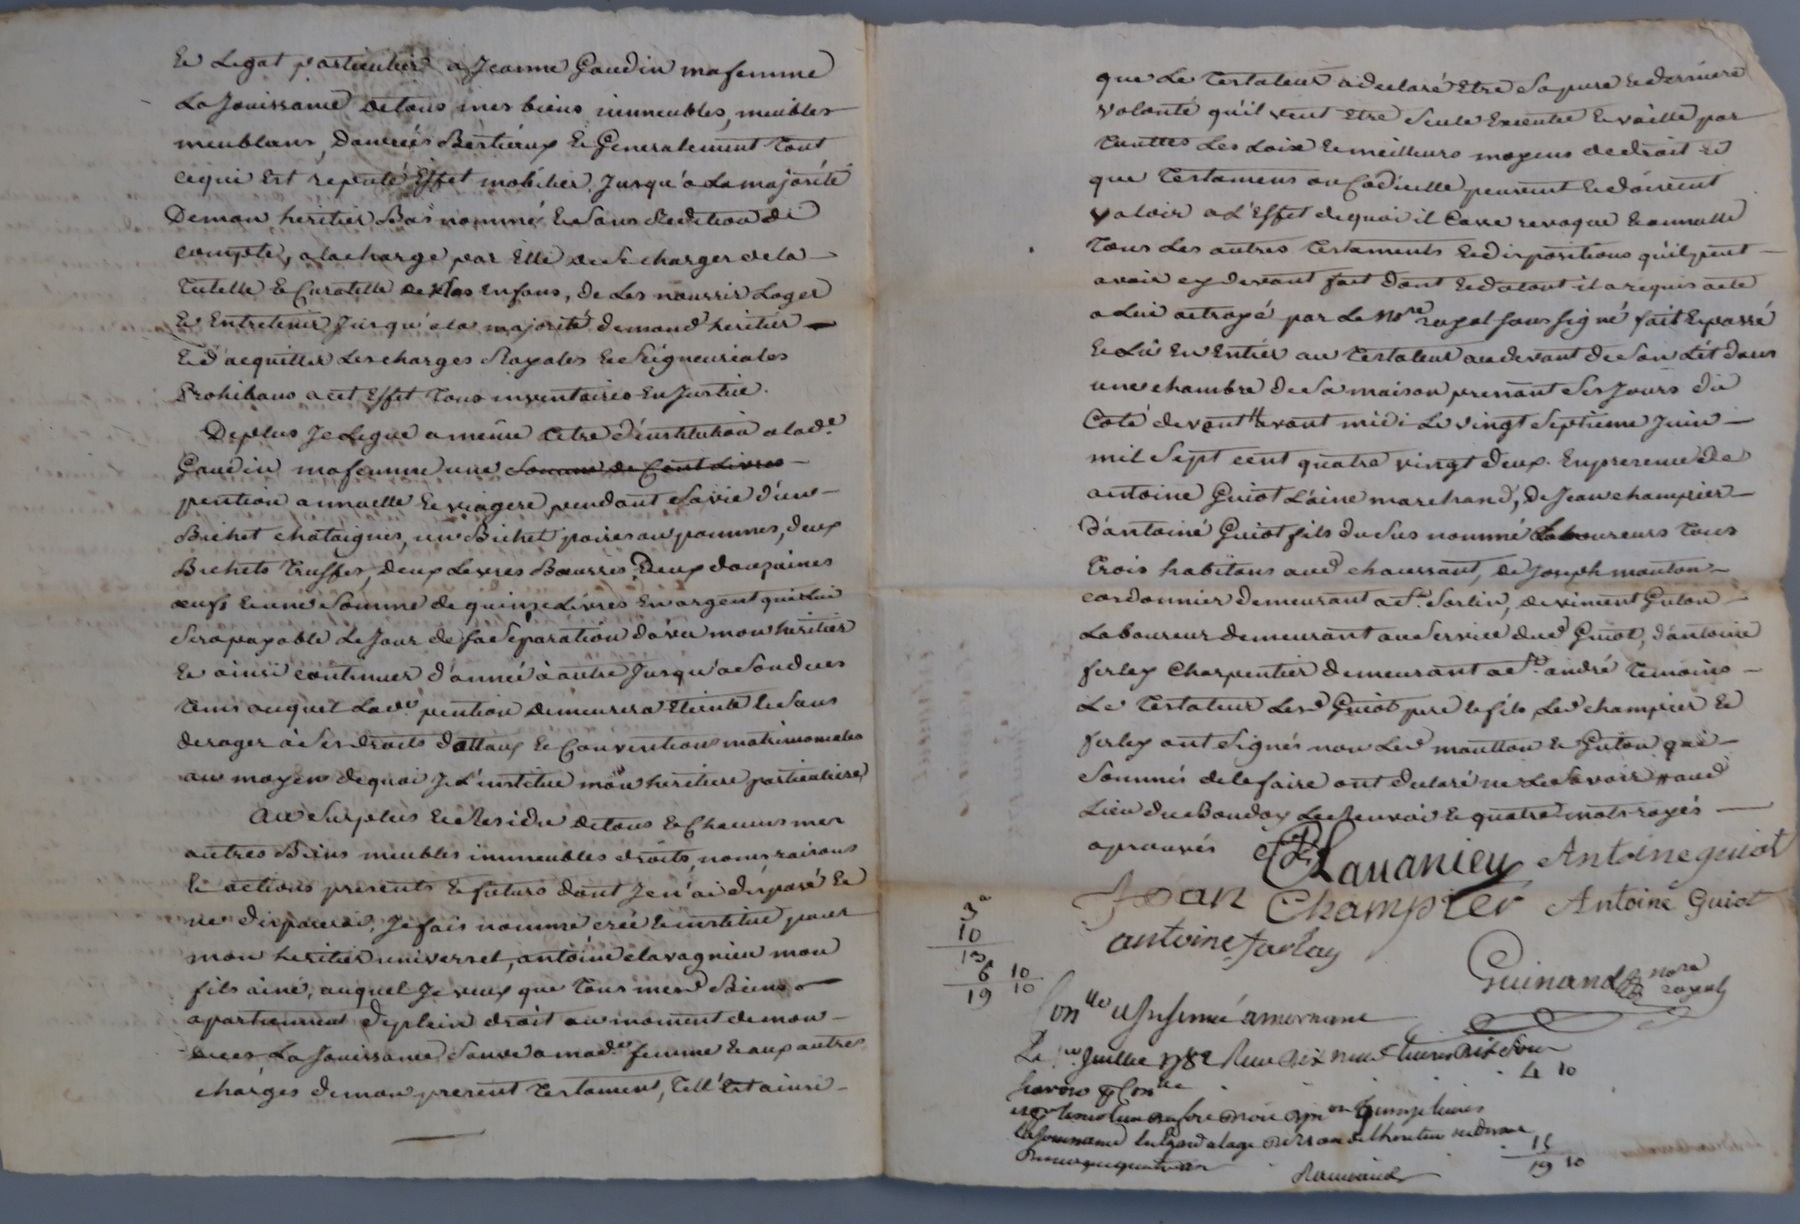 et Legat particulier a Jeanne Gaudin ma femme
La Jouissance de tous mes biens immeubles, meubles
meublans, Danrées Bestieaux et Generalement tout
ce qui est reputé Effet mobilier, Jusqu'a La majorité
De mon heritier Bas nommé et sans Reddition de
compte, a la charge par Elle de se charger de la
Tutelle et Curatelle de nos enfans, de Les nourrir Loger
et Entretenir Jusqu'a la majorité de mond. heritier
et d'acquitter Les charges Royales et Seigneuriales
Prohibans a cet Effet tous inventaires en Justice.
De plus Je Legue a meme titre d'institution a lad.e
Gaudin ma femme une somme de Cent Livres
pention annuelle et viagere pendant sa vie d'un
Bichet chataignes, un Bichet poires ou pommes, deux
Bichets Truffes, deux Livres Beurres, Deux douzaines
œufs et une somme de quinze Livres en argent qui Lui
sera payable Le Jour de sa Séparation d'avec mon heritier
et ainsi continuer d'année à autre Jusqu'a son deces
tems auquel Lad.e pention demeurera éteinte et sans
deroger à ses droits dottaux et Conventions matrimoniales
au moyen de quoi Je L'institue mon heritiere particuliere
Au Surplus et Residu de tous et Chacuns mes
autres Biens meubles immeubles droits, noms raisons
et actions presents et futurs dont Je n'ai disposé et
ne disposerai, Je fais nomme créé et institue pour
mon heritier universel, antoine clavagnieu mon
fils ainé, auquel Je veux que tous mesd. Biens
apartiennent de plein droit au moment de mon
deces La Jouissance sauve a mad.e femme et aux autres
charges de mon present testament, tell' Est ainsi
que Le testateur a declaré etre sa pure et derniere
volonté qu'il veut etre seule Executée et vaille par
touttes Les Loix et meilleurs moyens de droit et
que testamens ou Codicille peuvent et doivent
valoir a L'Effet de quoi il Casse revoque et annulle
tous Les autres testaments et dispositions qu'il peut
avoir cy devant fait dont et du tout il a requis acte
a Lui octroyé par Le No.re royal soussigné fait et passé
et Lû en entier au testateur au devant de son Lit dans
une chambre de sa maison prenant ses Jours du
Coté de vent avant midi Le vingt septieme Juin
mil sept cent quatre vingt deux. En presence de
antoine Guiot L'aine marchand, de Jean champier
d'antoine Guiot fils du sus nommé Laboureurs tous
trois habitans aud. chaussant, de Joseph mouton
cordonnier demeurant a S.t Sorlin, de viment Guton
Laboureur demeurant au service dud. Guiot, d'antoine
ferley Charpentier demeurant a S.t andré temoins
Le testateur Lesd. Guiot pere et fils, Led. champier et
ferley ont signés non Lesd. moutton et Guton qui
sommés de le faire ont declaré ne Le savoir # aud.
Lieu du Boudoy Le Renvoi et quatre mots rayés
aprouvés Clavanieu Antoine guiot
Jean Champier Antoine Guiot
antoine farlay
Guinand no.re royal
3
10
13
6 10
19 10
Con.lé et Insinué a mornant
Le Juillet 1782 Reçu dix neuf livres dix sous
savoir p.r Con.lle 4 10
15
19 10